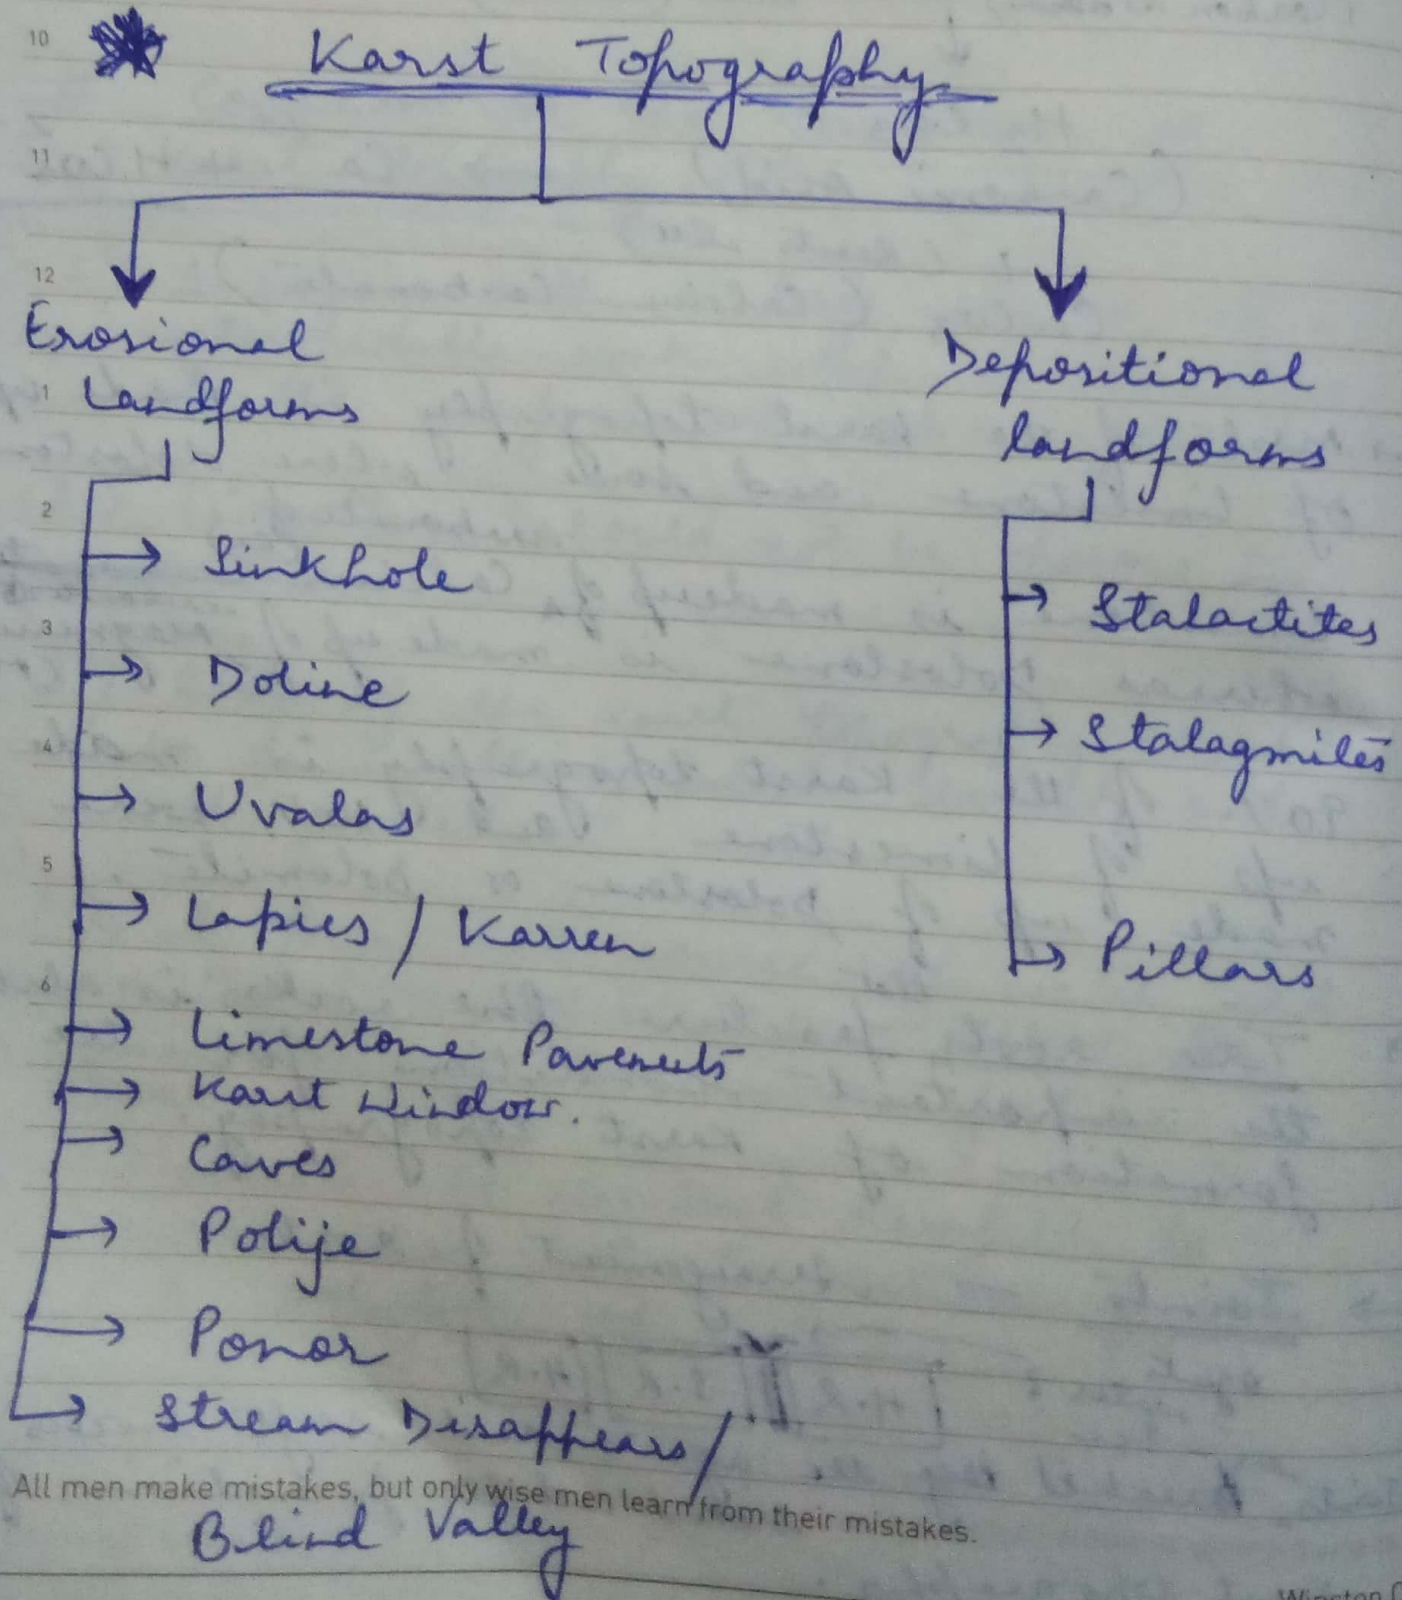 10
Karst Topography
11
12
Erosional
Landforms
Depositional
landforms
1
2
Sinkhole
3
Doline
4
Uvalas
5
Lapies / Karren
6
Limestone Pavements
Karst Window.
Caves
Polije
Ponor
Stream Disappears /
Blind Valley
Stalactites
Stalagmites
Pillars
All men make mistakes, but only wise men learn from their mistakes.
Winston